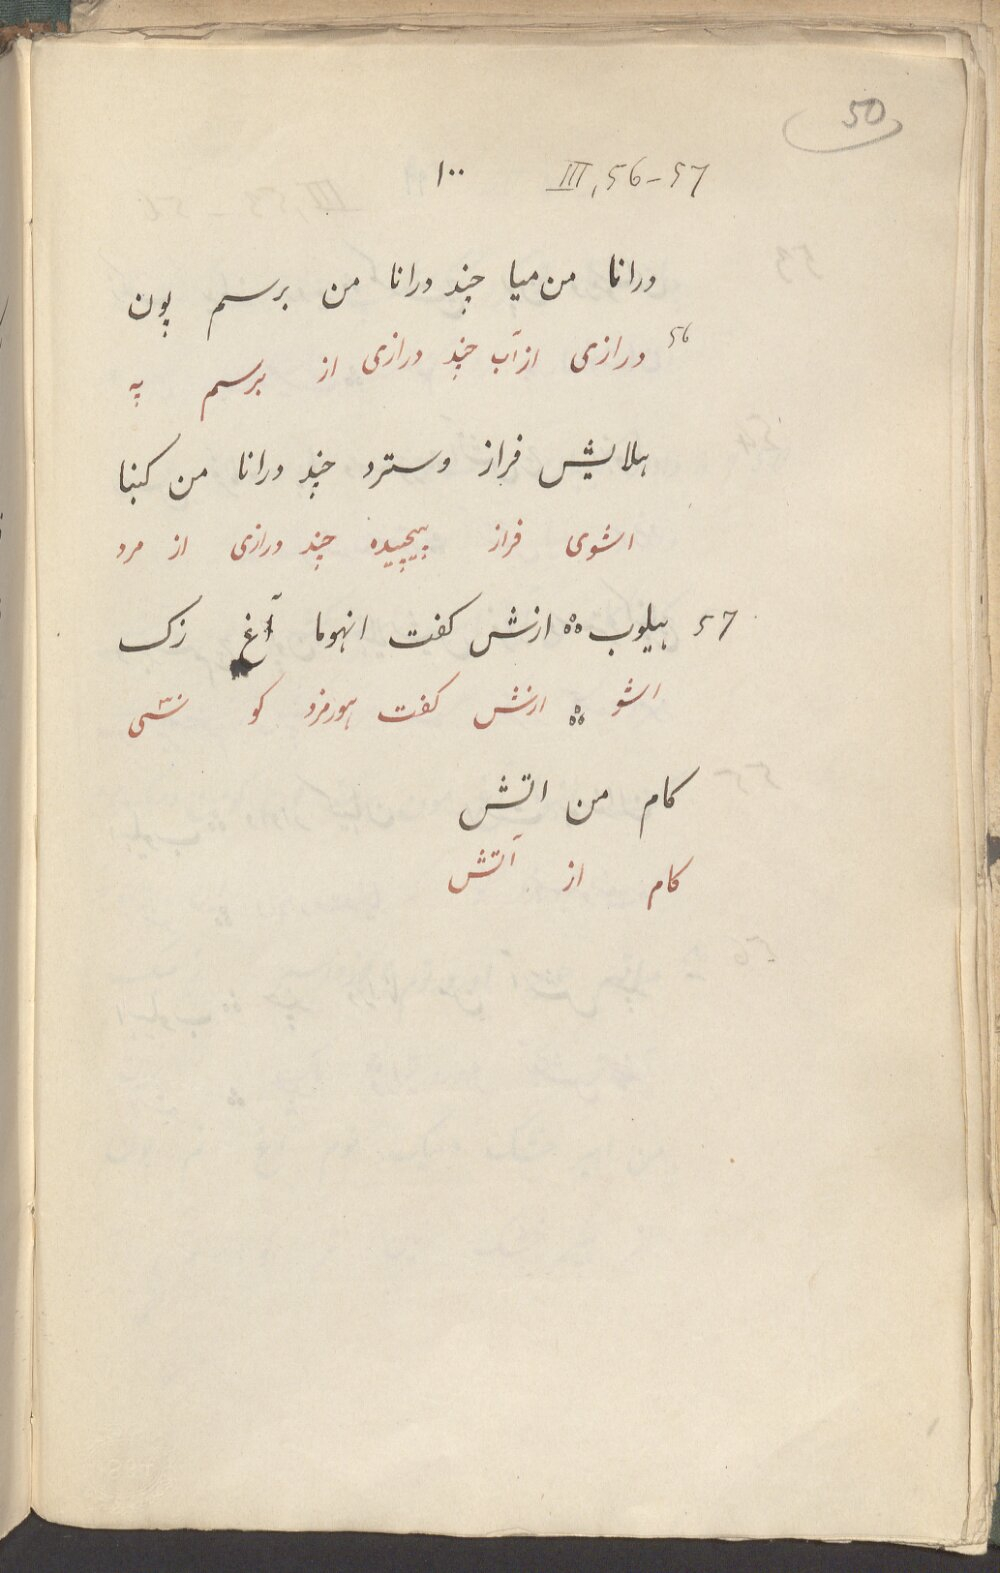 50
١٠٠ III, 56-57
ورانا من میا چند ورانا من برسم پون
56 درازی از آب چند درازی از برسم په
هلایش فراز وسترد چند ورانا من کبنا
اشوی فراز پیچیده چند درازی از مرد
57 هیلوب ஃ ازش کفت انهوما آغ زک
اشو ஃ ازش کفت هورمزد کو
کام من اتش
کام از آتش